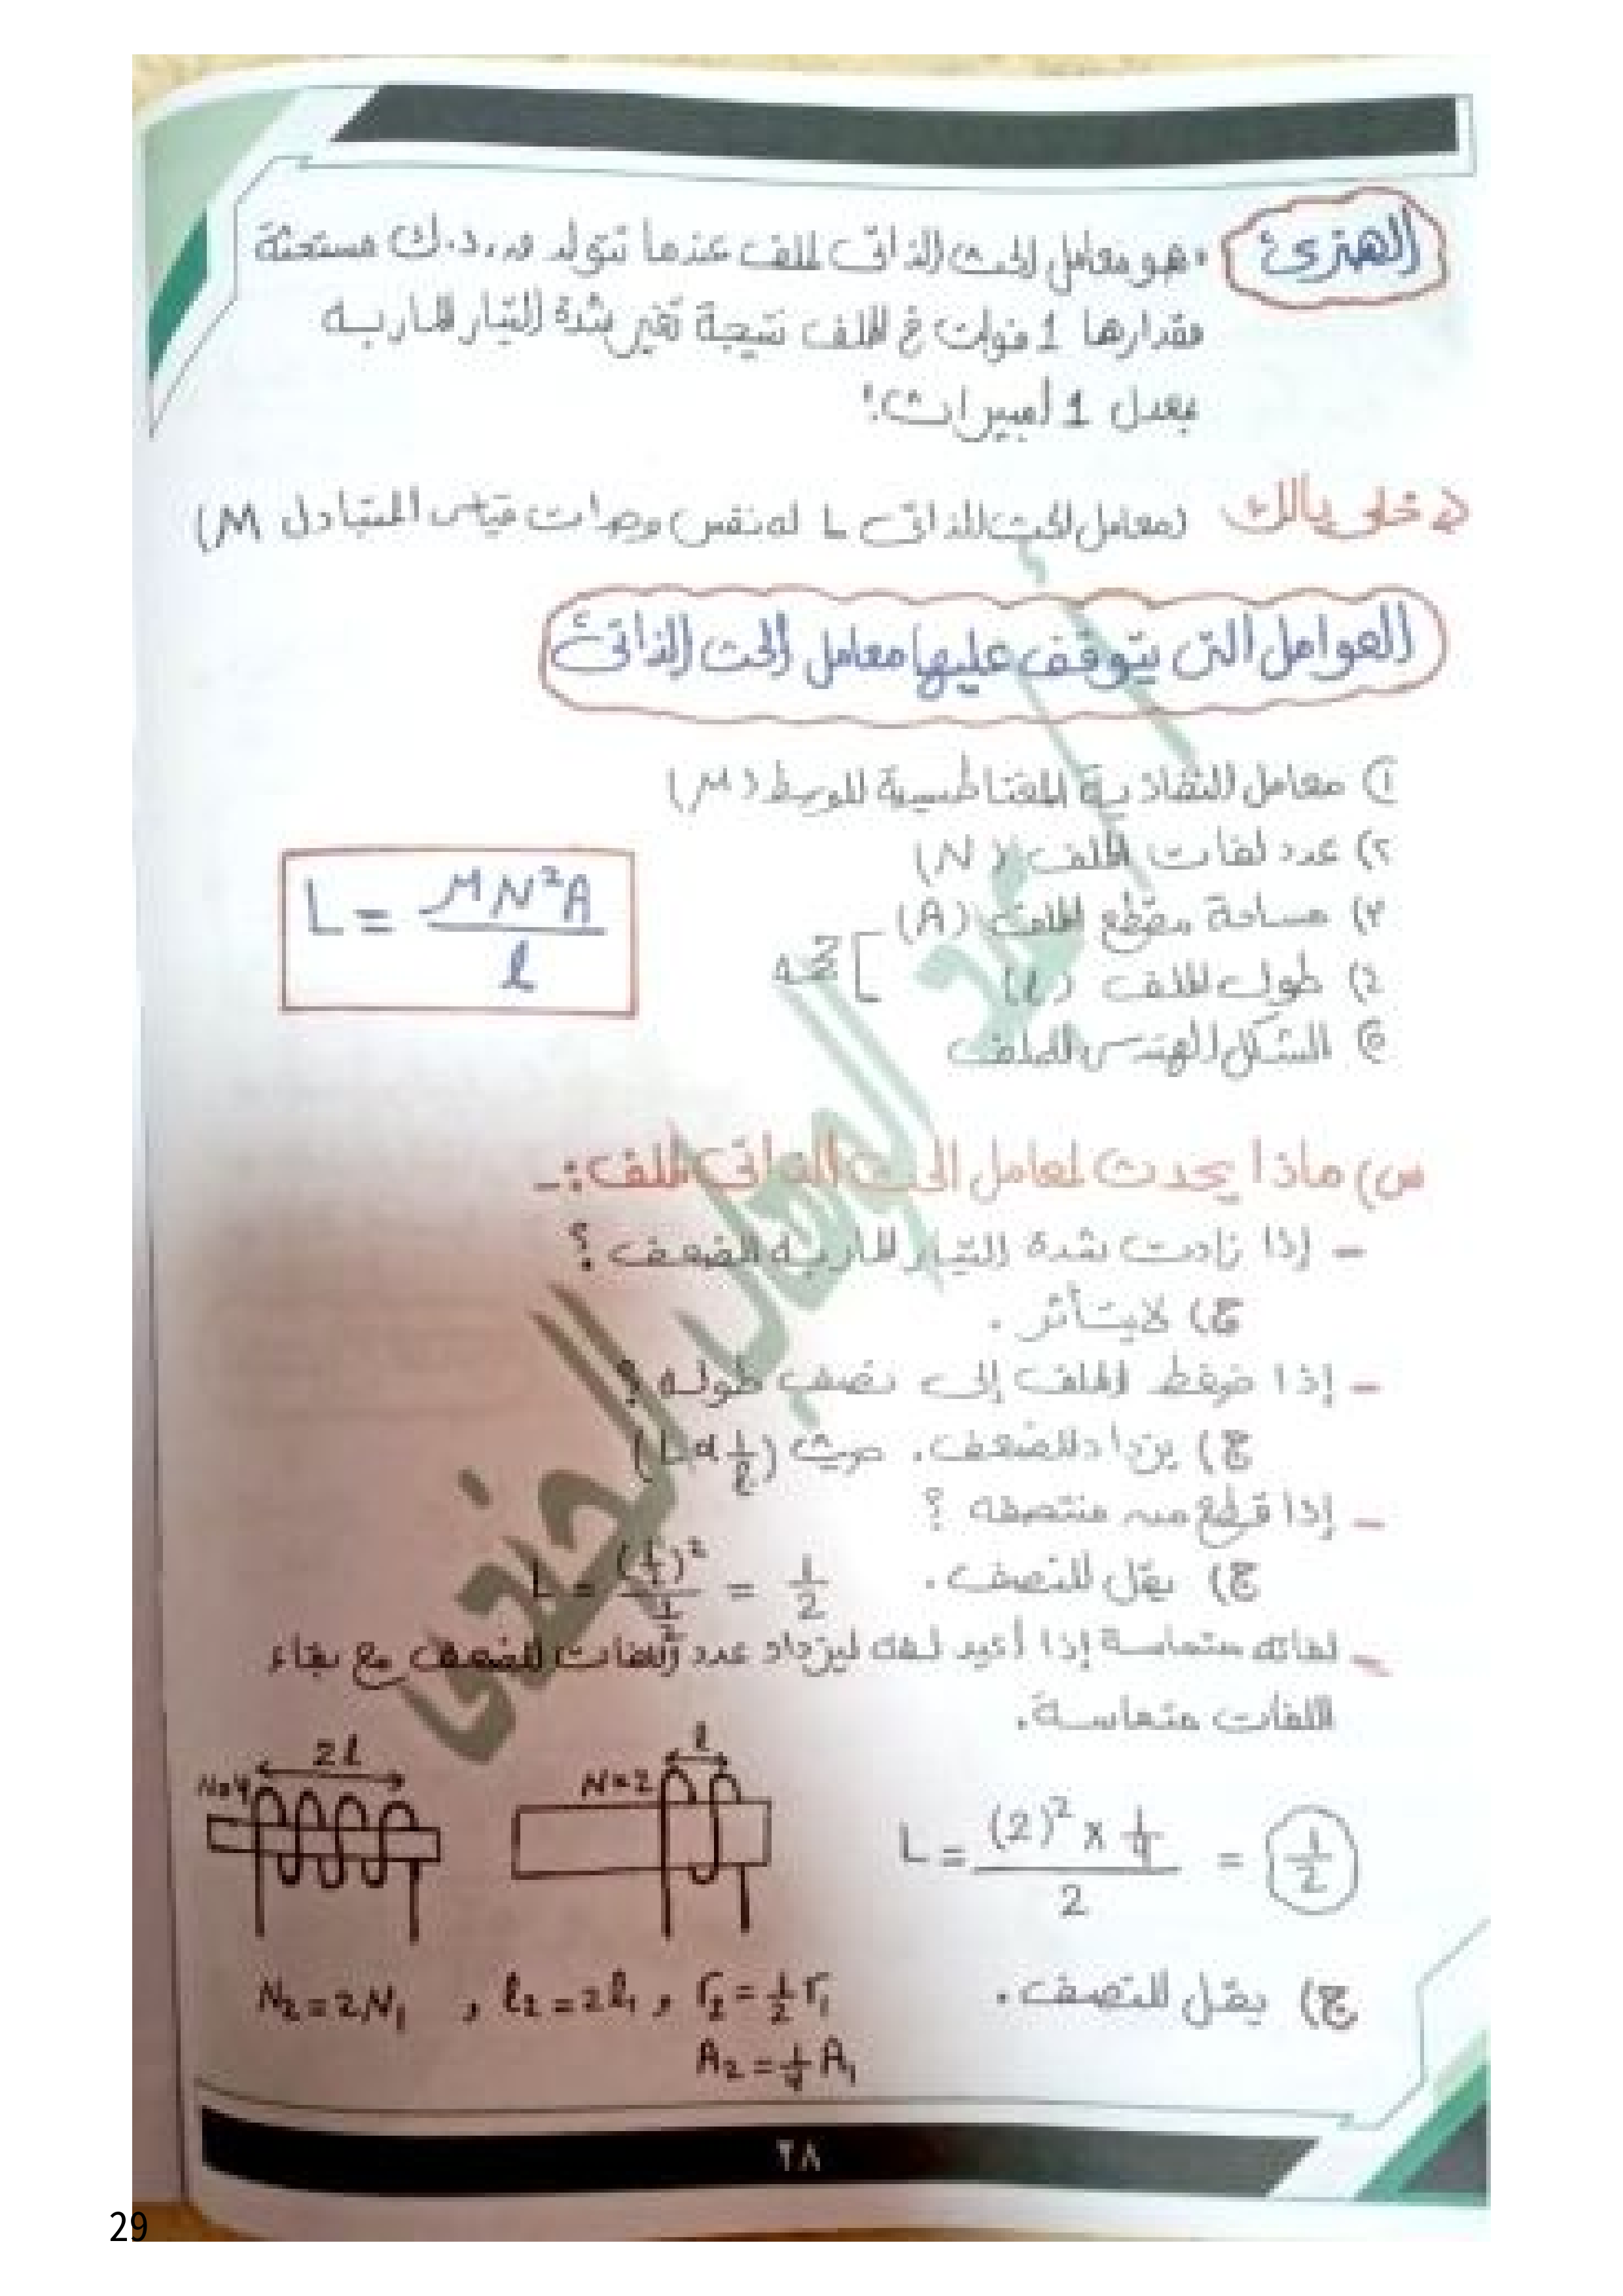 الهنرى
"هو معامل الحث الذاتى لملف عندما تتولد ق.د.ك مستحثة
مقدارها 1 فولت فى الملف نتيجة تغير شدة التيار المار به
بمعدل 1 أمبير/ث"
خلى بالك (معامل الحث الذاتى L له نفس وحدات قياس المتبادل M)
العوامل التى يتوقف عليها معامل الحث الذاتى
١) معامل النفاذية المغناطيسية للوسط (μ)
٢) عدد لفات الملف (N)
٣) مساحة مقطع الملف (A)
٤) طول الملف (l)
٥) الشكل الهندسى للملف
L = μN²A / l
س) ماذا يحدث لمعامل الحث الذاتى لملف :-
- إذا زادت شدة التيار المار به للضعف ؟
ج) لا يتأثر .
- إذا ضغط الملف إلى نصف طوله ؟
ج) يزداد للضعف . حيث (L α 1/l)
- إذا قطع من منتصفه ؟
ج) يقل للنصف . L = (1/2)² / 1/2 = 1/2
- لفاته متماسة إذا أعيد لفه ليزداد عدد اللفات للضعف مع بقاء
اللفات متماسة .
N=4 2l N=2 l
L = (2)² x 1/4 / 2 = 1/2
ج) يقل للنصف .
N₂ = 2N₁ , l₂ = 2l₁ , r₂ = 1/2 r₁
A₂ = 1/4 A₁
٢٨
29